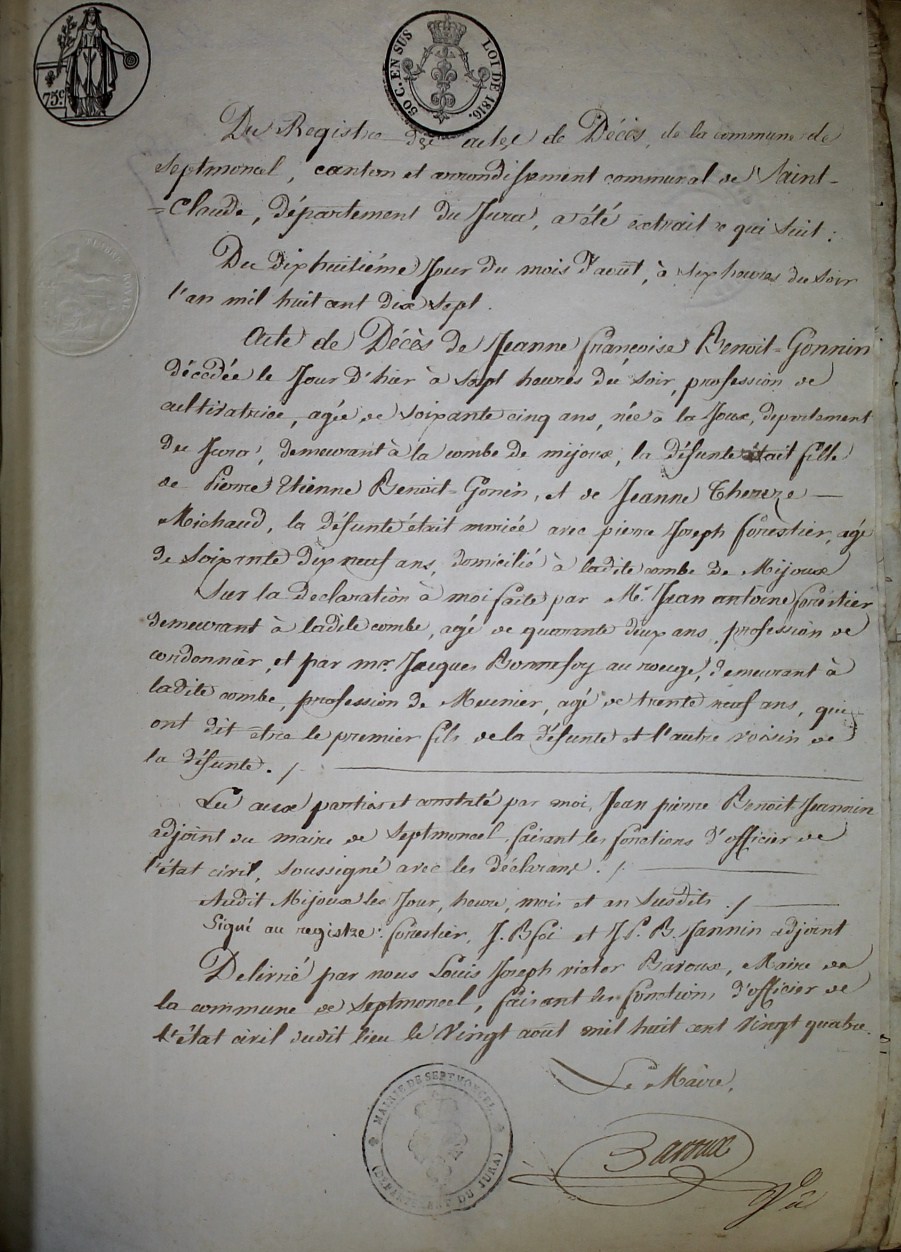 75c
50 C. EN SUS LOI DE 1816.
Du Registre des actes de Décès, de la commune de
Septmoncel, canton et arrondissement communal de Saint-
=Claude, département du Jura, a été extrait ce qui suit:
Du dix huitiéme Jour du mois d'août, à six heures du soir
l'an mil huit cent dix sept.
Acte de Décès de Jeanne françoise Benoit=Gonnin
décédée le Jour d'hier à sept heures du soir, profession de
cultivatrice, agée de soixante cinq ans, née à la Joux, departement
du Jura, demeurant à la combe de mijoux, la défunte était fille
de Pierre Etienne Benoit=Gonin, et de Jeanne Thereze —
Michaud, la défunte était mariée avec pierre Joseph forestier, agé
de soixante dix neuf ans, domicilié à ladite combe de Mijoux
Sur la declaration à moi faite par Mr. Jean antoine forestier
demeurant à ladite combe, agé de quarante deux ans, profession de
cordonnier, et par mr. Jacques Bonnefoy au rouge, demeurant à
ladite combe, profession de Meunier, agé de trente neuf ans, qui
ont dit etre le premier fils de la défunte et l'autre voisin de
la défunte. /
Lu aux parties et constaté par moi, Jean pierre Benoit Jeannin
adjoint du maire de Septmoncel, faisant les fonctions d'officier de
l'état civil, soussigné avec les déclarans. /
Audit Mijoux les Jour, heure, mois et an susdits. /
Signé au registre: forestier, J. Bfoi et J P. B. Jannin adjoint
Delivré par nous Louis Joseph victor Baroux, Maire de
la commune de Septmoncel, faisant les fonctions d'officier de
l'état civil dudit lieu le Vingt août mil huit cent vingt quatre.
Le Maire,
MAIRIE DE SEPTMONCEL (DÉPARTEMENT DU JURA)
Baroux